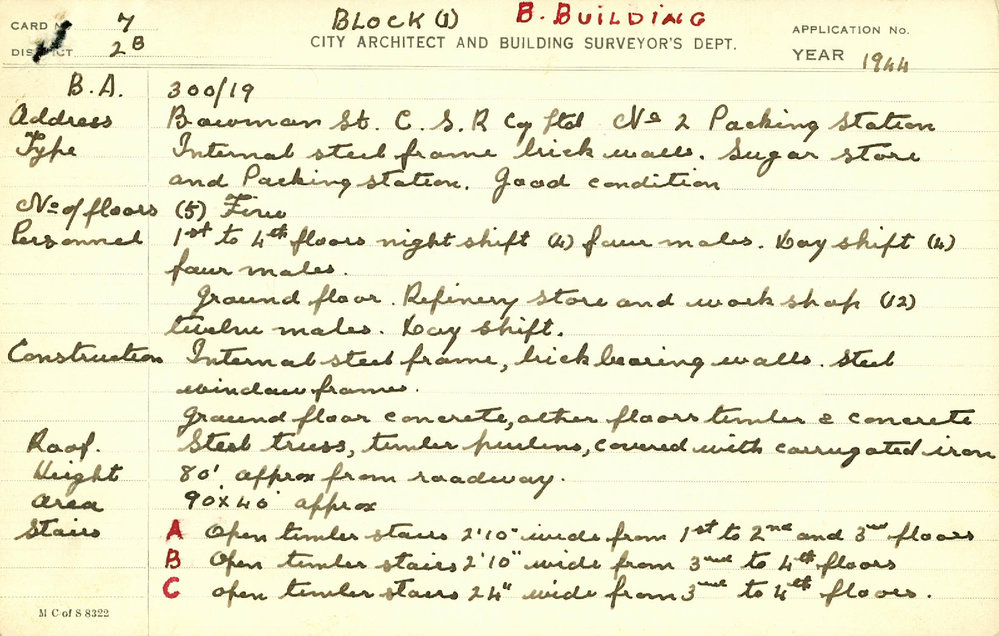 CARD No. 7 BLOCK (1) B. BUILDING APPLICATION No.
DISTRICT 2B CITY ARCHITECT AND BUILDING SURVEYOR'S DEPT. YEAR 1944
B.A. 300/19
Address Bowman St. C. S. R Cy Ltd No 2 Packing Station
Type Internal steel frame brick walls. Sugar store
and Packing station. Good condition
No of floors (5) Five
Personnel 1st to 4th floors night shift (4) four males. Day shift (4)
four males.
Ground floor. Refinery store and work shop (12)
twelve males. Day shift.
Construction Internal steel frame, brick bearing walls. Steel
window frames.
Ground floor concrete, other floors timber & concrete
Roof. Steel truss, timber purlins, covered with corrugated iron
Height 80' approx from roadway.
Area 90' x 40' approx
Stairs A Open timber stairs 2'10" wide from 1st to 2nd and 3rd floors
B Open timber stairs 2'10" wide from 3rd to 4th floors
C open timber stairs 24" wide from 3rd to 4th floors.
M C of S 8322